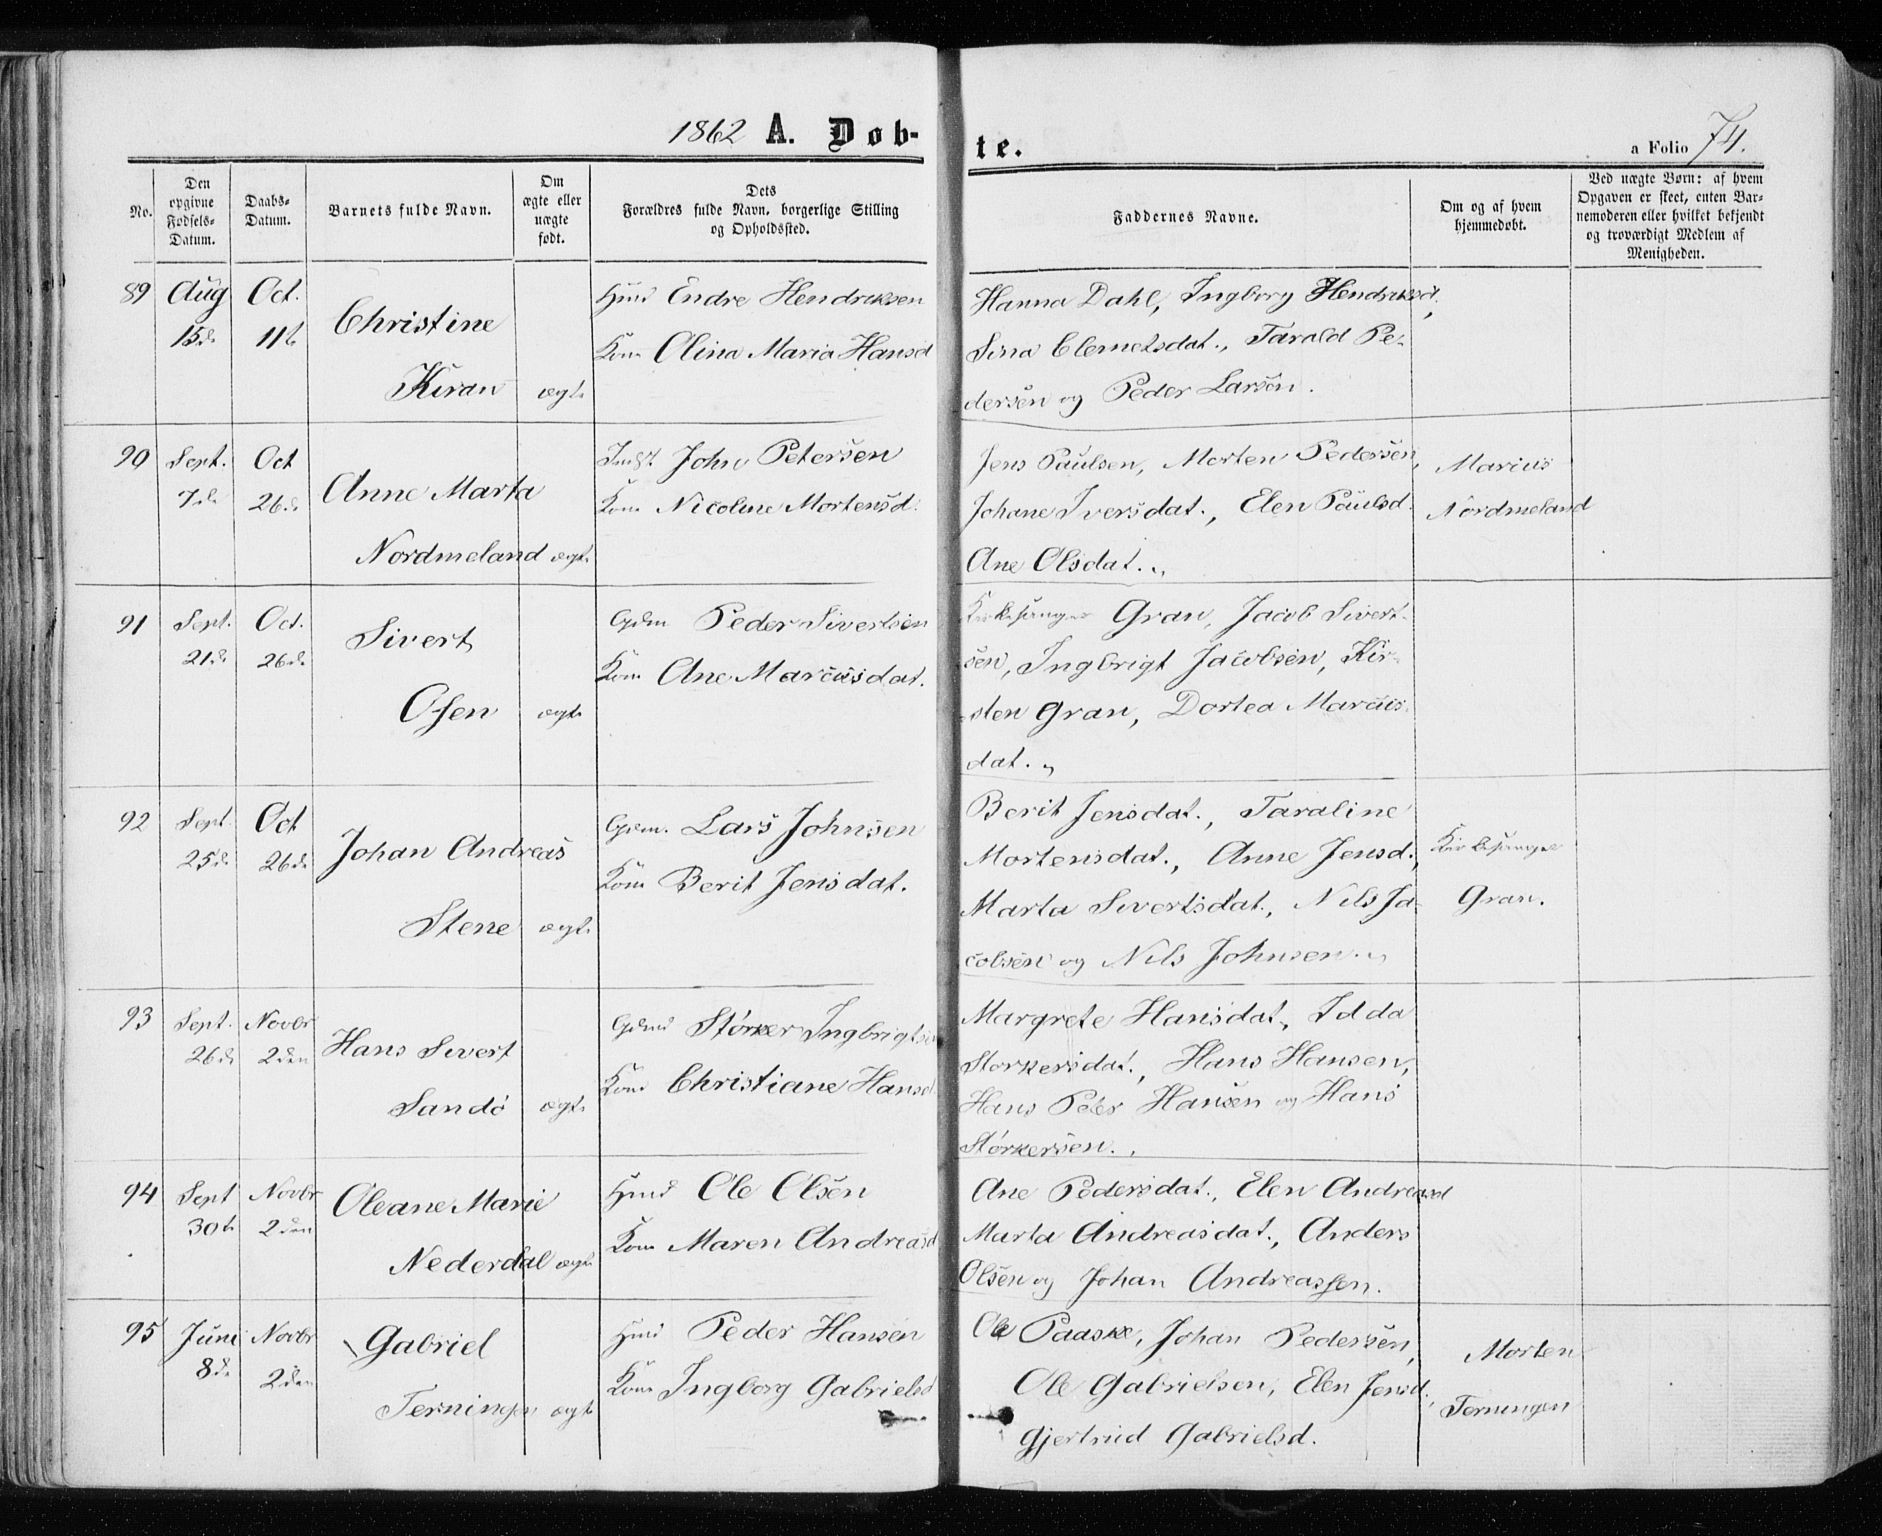 1862 A. Døb-
te.
a Folio 74.
No.
Den opgivne Fødsels-Datum.
Daabs-Datum.
Barnets fulde Navn.
Om ægte eller uægte født.
Dets
Forældres fulde Navn, borgerlige Stilling
og Opholdssted.
Faddernes Navne.
Om og af hvem
hjemmedøbt.
Ved uægte Børn: af hvem
Opgaven er skeet, enten Bar-
nemoderen eller hvilket bekjendt
og troværdigt Medlem af
Menigheden.
89 Aug Oct. Hmd Endre Hendriksen
15de 11te Christine Kone Olina Maria Hansd
Kiran ægte
Hanna Dahl, Ingborg Hendriksd,
Sina Clemetsdat., Tarald Pe-
dersen og Peder Larsen.
90 Sept. Oct Indst. John Petersen
7de 26de Anne Marta Kone Nicoline Mortensd.
Nordmeland ægte
Jens Paulsen, Morten Pedersen, Marius
Johane Iversdat., Elen Paulsd. Nordmeland
Ane Olsdat.
91 Sept. Oct. Sivert Gdm Peder Sivertsen
21de 26de Kone Ane Marcusdat.
Osen ægte
Kirkesanger Gran, Jacob Sivert-
sen, Ingbrigt Jacobsen, Kir-
sten Gran, Dortea Marcus-
dat.
92 Sept. Oct Gdm. Lars Johnsen
25de 26de Johan Andreas Kone Berit Jensdat.
Stene ægte
Berit Jensdat., Taraline
Mortensdat., Anne Jensd., Kirkesanger
Marta Sivertsdat., Nils Ja- Gran.
cobsen og Nils Johnsen.
93 Sept. Novbr Gdmd Størker Ingbrigtsen
26de 2den Hans Sivert Kone Christiane Hansd
Sandø ægte
Margrete Hansdat., Idda
Storkersdat., Hans Hansen,
Hans Peter Hansen og Hans
Størkersen.
94 Sept Novbr Oleane Marie Hmd Ole Olsen
30te 2den Kone Maren Andreasd
Nederdal ægte
Ane Pedersdat., Elen Andreasd
Marta Andreasdat., Anders
Olsen og Johan Andreassen.
95 Juni Novbr Gabriel Hmd Peder Hansen
8de 2den Kone Ingborg Gabrielsd
Terningen ægte
Ole Paaske, Johan Pedersen, Morten
Ole Gabrielsen, Elen Jensd., Terningen
Gjertrud Gabrielsd.